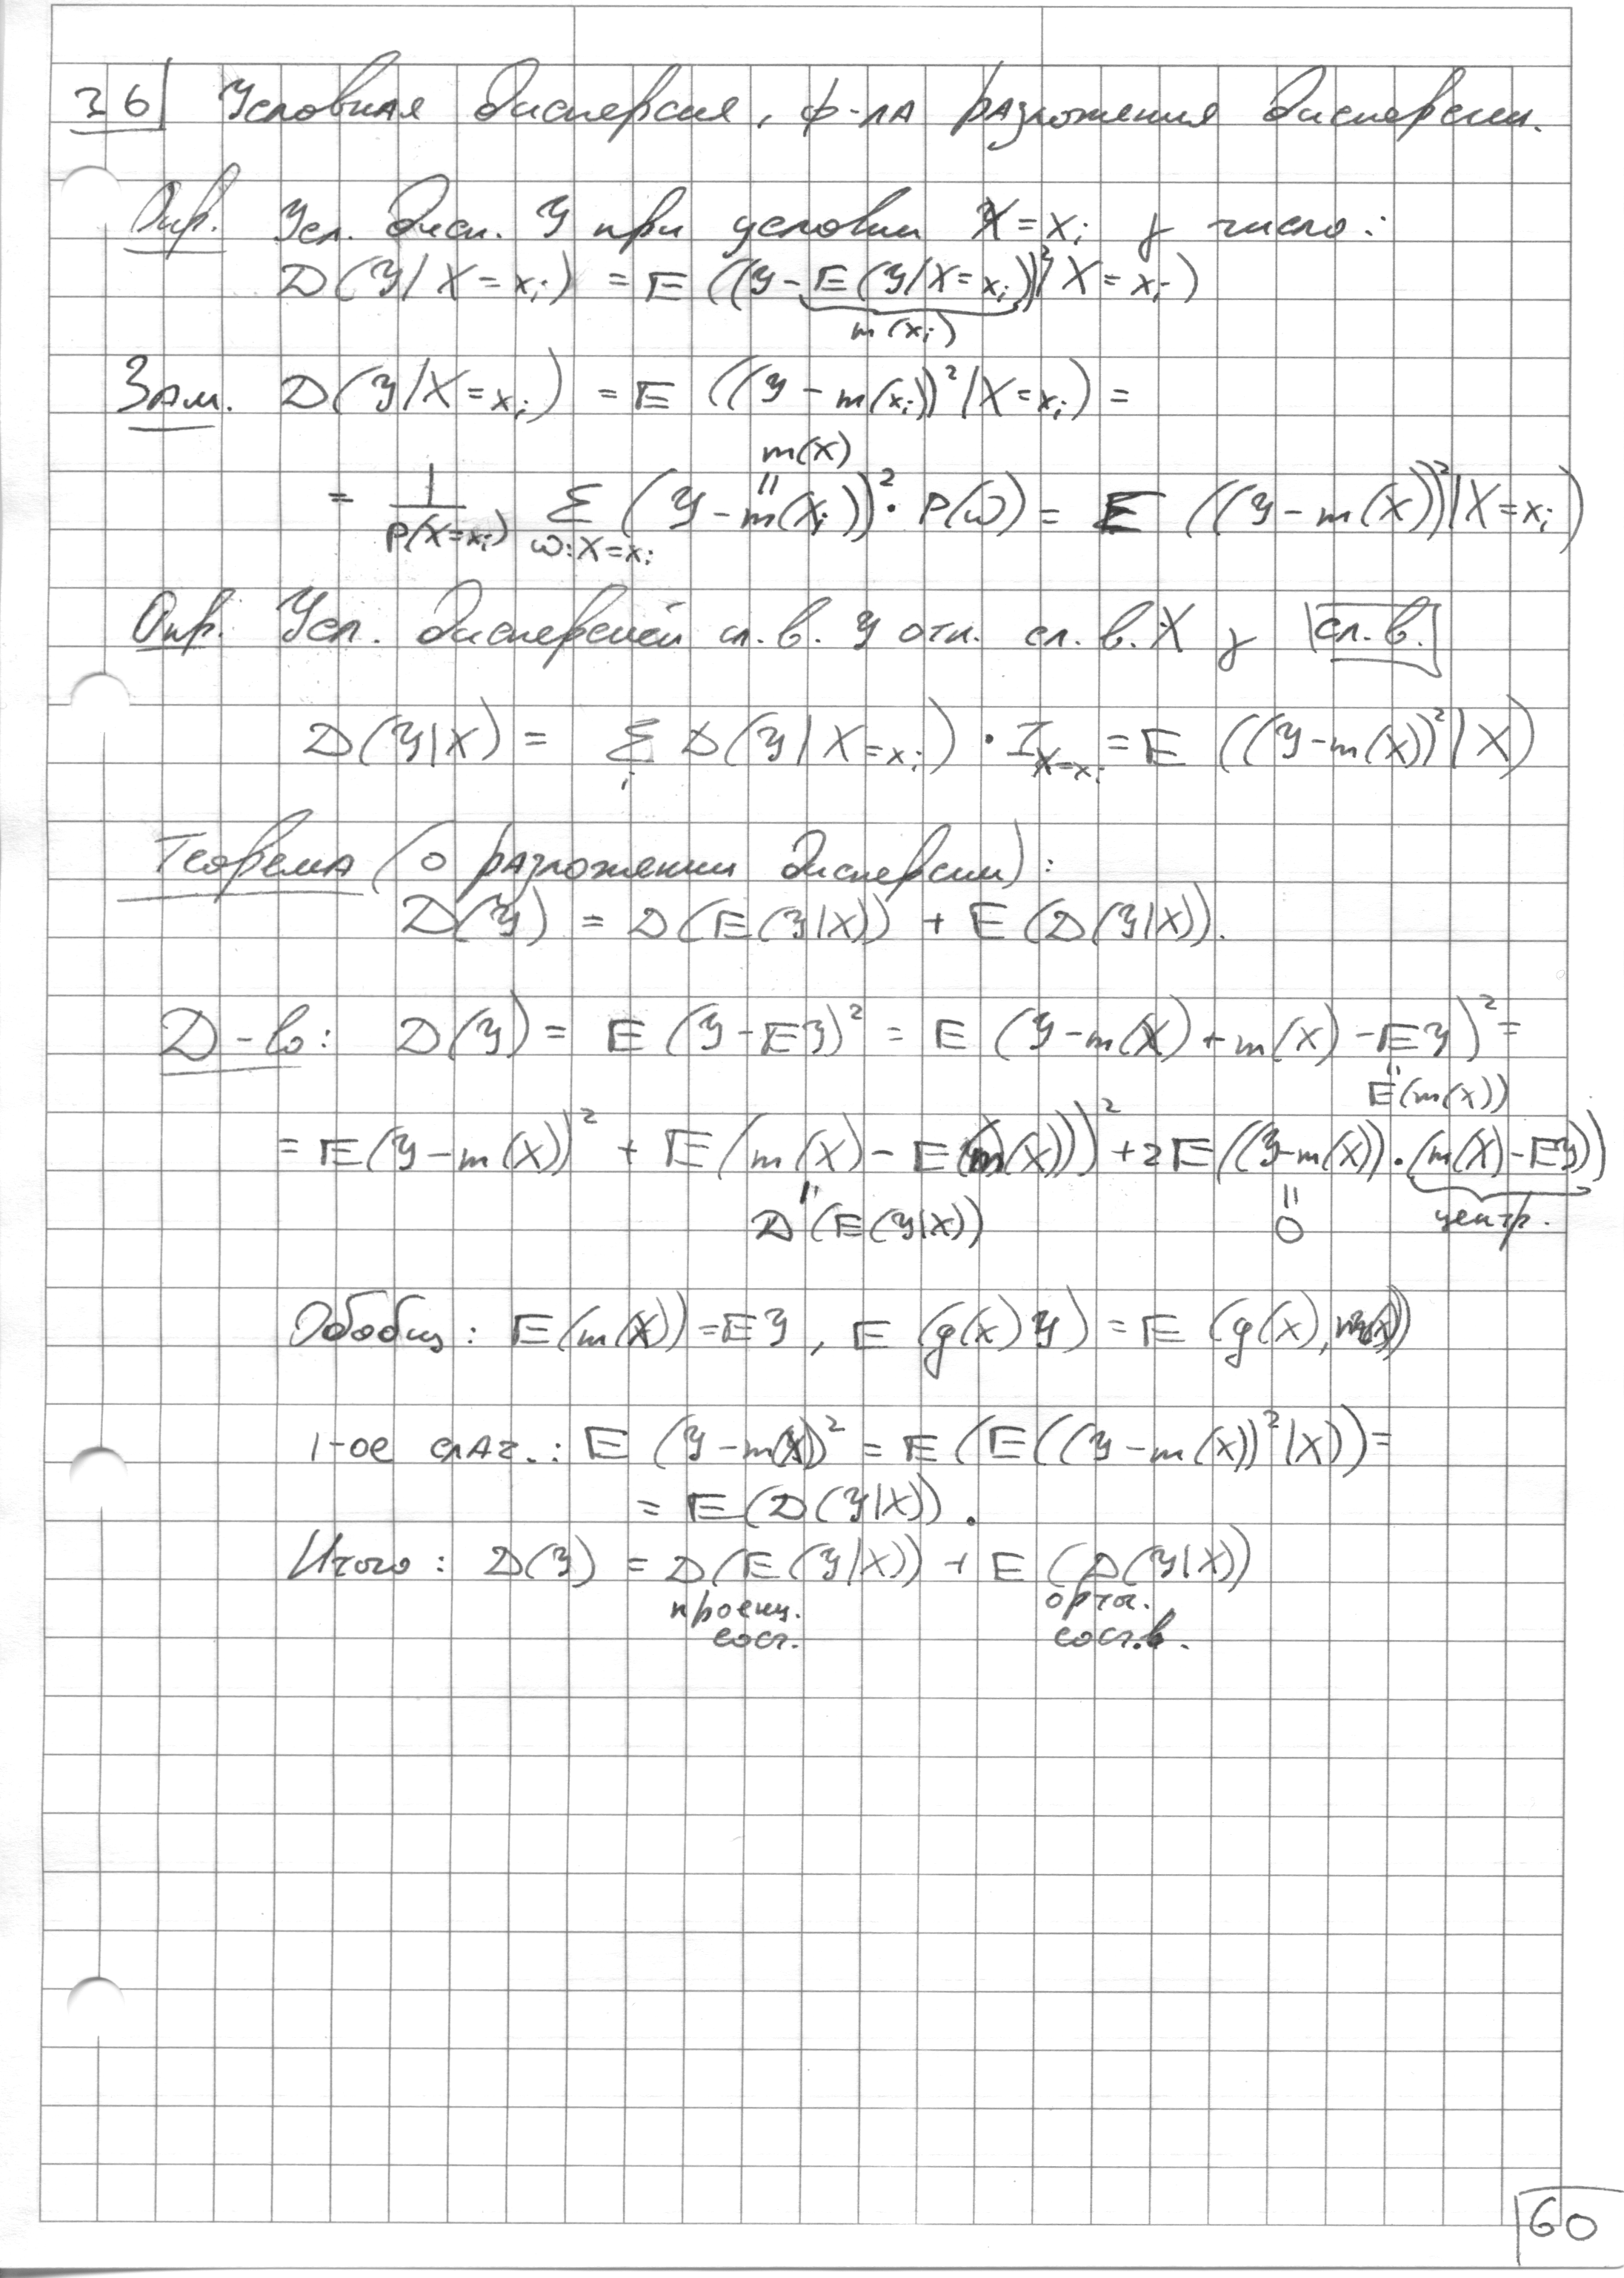 36 | Условная дисперсия, ф-ла разложения дисперсии.
Опр. Усл. дисп. Y при условии X = xᵢ γ число:
D(Y/X = xᵢ) = E((Y - E(Y/X = xᵢ))²/X = xᵢ)
m(xᵢ)
Зам. D(Y/X = xᵢ) = E((Y - m(xᵢ))²/X = xᵢ) =
m(X)
= 1/P(X = xᵢ) Σ_{ω: X = xᵢ} (Y - m(xᵢ))² · P(ω) = E((Y - m(X))²/X = xᵢ)
Опр. Усл. дисперсией сл. в. Y отн. сл. в. X γ сл. в.
D(Y|X) = Σᵢ D(Y/X = xᵢ) · I_{X = xᵢ} = E((Y - m(X))²|X)
Теорема (о разложении дисперсии):
D(Y) = D(E(Y|X)) + E(D(Y|X)).
Д-во: D(Y) = E(Y - EY)² = E(Y - m(X) + m(X) - EY)² =
E(m(X))
= E(Y - m(X))² + E(m(X) - E(m(X)))² + 2E((Y - m(X)) · (m(X) - EY))
D(E(Y|X)) 0 центр.
Обобщ: E(m(X)) = EY, E(g(X)Y) = E(g(X), m(X))
1-ое слаг.: E(Y - m(X))² = E(E((Y - m(X))²|X)) =
= E(D(Y|X)).
Итого: D(Y) = D(E(Y|X)) + E(D(Y|X))
проекц. ортог.
сост. сост.в.
60